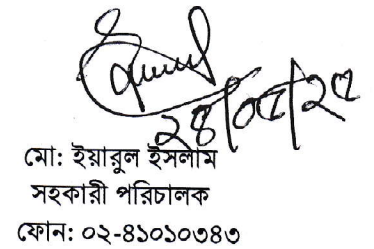 ২৪/০৫/২৫
মো: ইয়ারুল ইসলাম
সহকারী পরিচালক
ফোন: ০২-৪১০১০৩৪৩